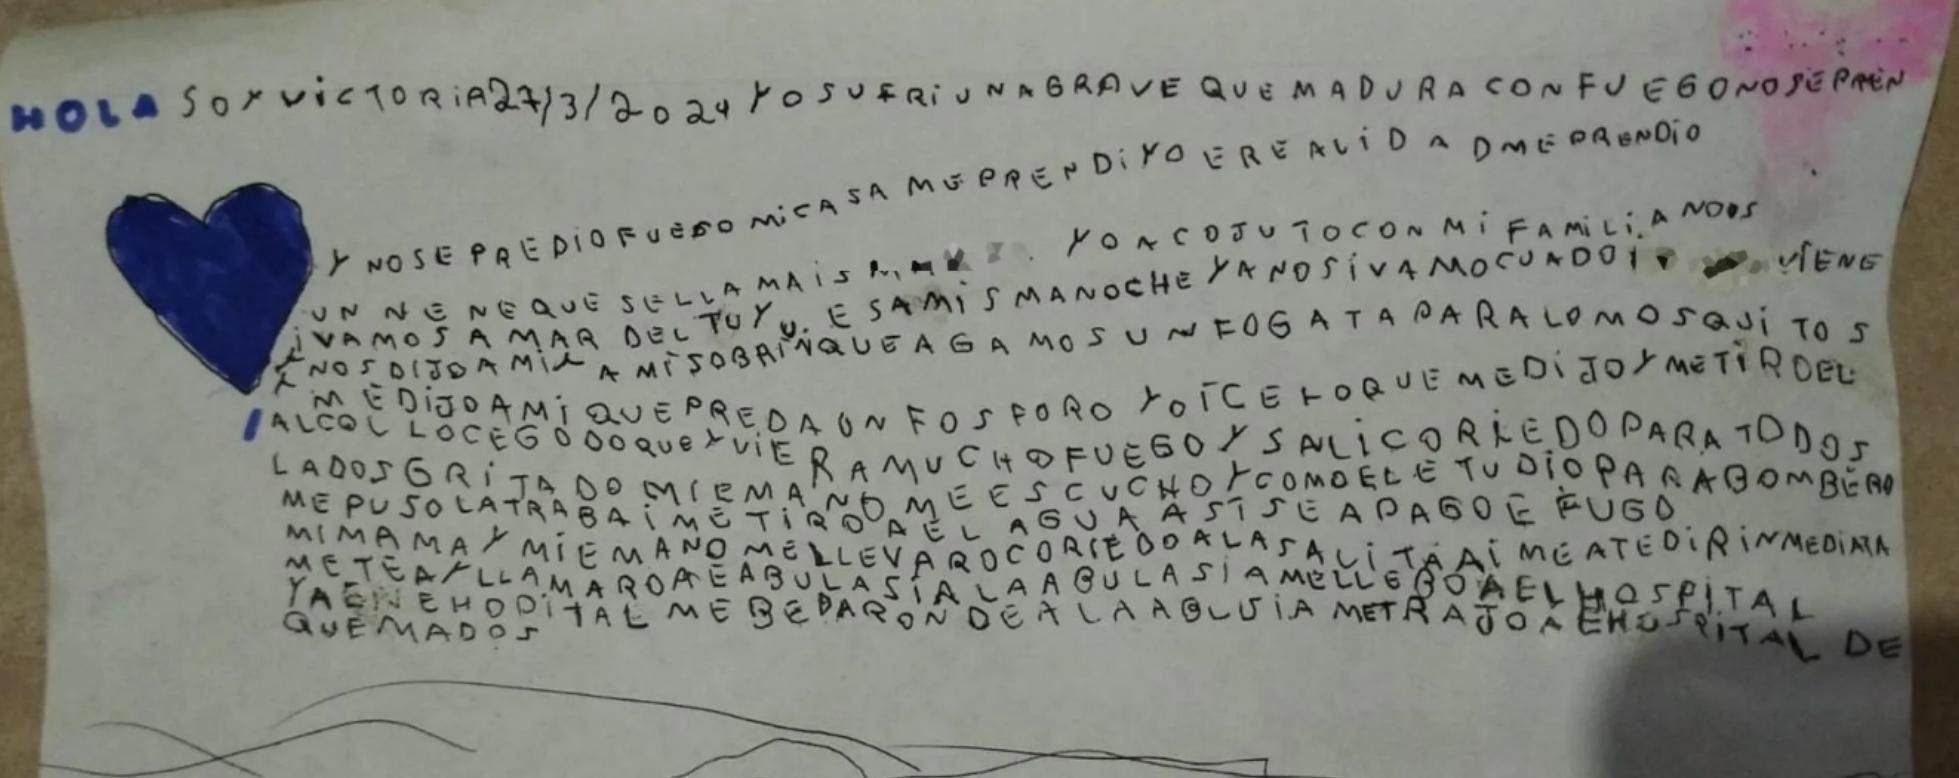 HOLA SOY VICTORIA 27/3/2024 YO SUFRI UNA GRAVE QUEMADURA CON FUEGO NO SE PREN
Y NO SE PREDIO FUEGO MI CASA ME PRENDI YO E REALIDAD ME PRENDIO
UN NENE QUE SE LLAMA YO ACOJUTO CON MI FAMILIA NOOS
IVAMOS A MAR DEL TUYU. ESA MISMA NOCHE YA NOS IVAMO CUADO VIENE
Y NOS DIJO A MI Y A MI SOBRINA QUE AGAMOS UN FOGATA PARA LO MOSQUITOS
Y ME DIJO A MI QUE PREDA UN FOSFORO YO ICE LO QUE ME DIJO Y ME TIRO EL
ALCOL LOCEGO DO QUE Y VI ERA MUCHO FUEGO Y SALI CORIEDO PARA TODOS
LADOS GRITADO MI EMANO ME ESCUCHO Y COMO EL ETUDIO PARA BOMBERO
ME PUSO LA TRABA I ME TIRO A EL AGUA ASI SE APAGO E FUGO
MI MAMA Y MI EMANO ME LLEVARO CORIEDO A LA SALITA AI ME ATEDIR INMEDIATA
METE A Y LLAMARO A E ABULASIA LA ABULASIA ME LLEBO A EL HOSPITAL
YA EN E HOPITAL ME BEPARON DE A LA ABLUSIA ME TRAJO A E HOSPITAL DE
QUEMADOS